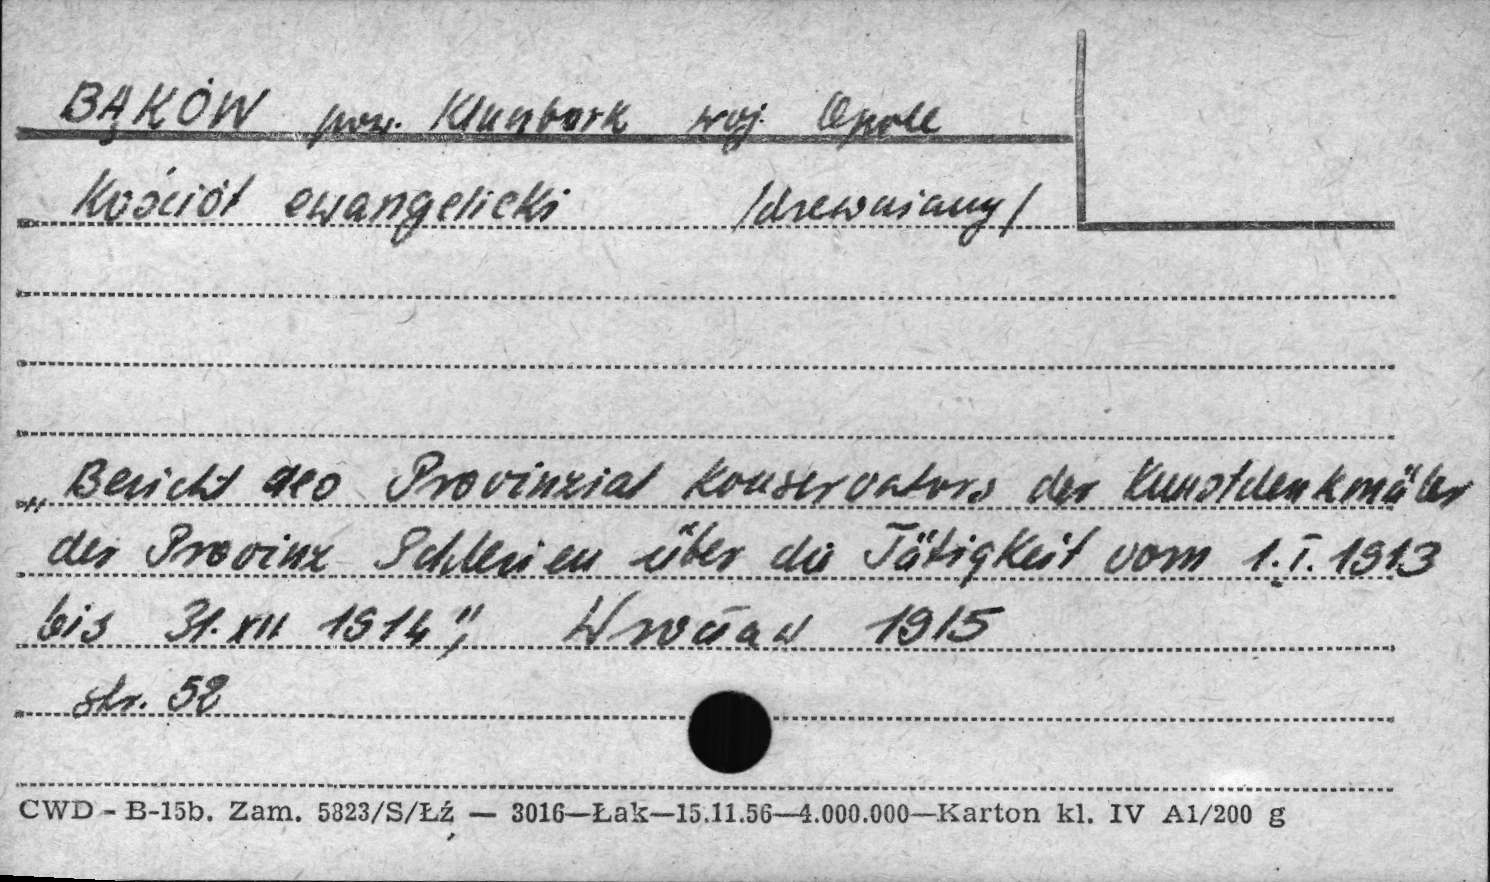 BĄKÓW pow. Kluczbork woj. Opole
Kościół ewangelicki /drewniany/
„Bericht des Provinzial Konservators der Kunstdenkmäler
der Provinz Schlesien über die Tätigkeit vom 1.I.1913
bis 31.XII 1914", Wrocław 1915
str. 52
CWD - B-15b. Zam. 5823/S/Łź — 3016—Łak—15.11.56—4.000.000—Karton kl. IV A1/200 g